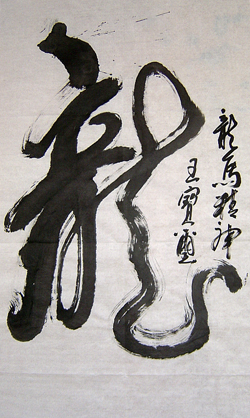 龍
龍馬精神
王寶